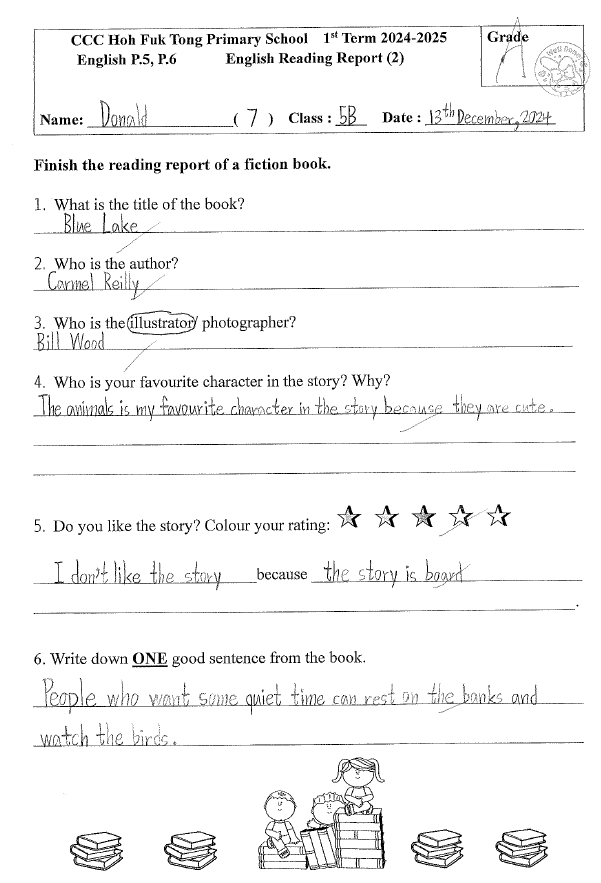 CCC Hoh Fuk Tong Primary School 1st Term 2024-2025
English P.5, P.6 English Reading Report (2)
Grade
A
Well Done
Name: Donald ( 7 ) Class : 5B Date : 13th December, 2024
Finish the reading report of a fiction book.
1. What is the title of the book?
Blue Lake
2. Who is the author?
Carmel Reilly
3. Who is the illustrator/ photographer?
Bill Wood
4. Who is your favourite character in the story? Why?
The animals is my favourite character in the story because they are cute.
5. Do you like the story? Colour your rating:
I don't like the story because the story is board
.
6. Write down ONE good sentence from the book.
People who want some quiet time can rest on the banks and
watch the birds.